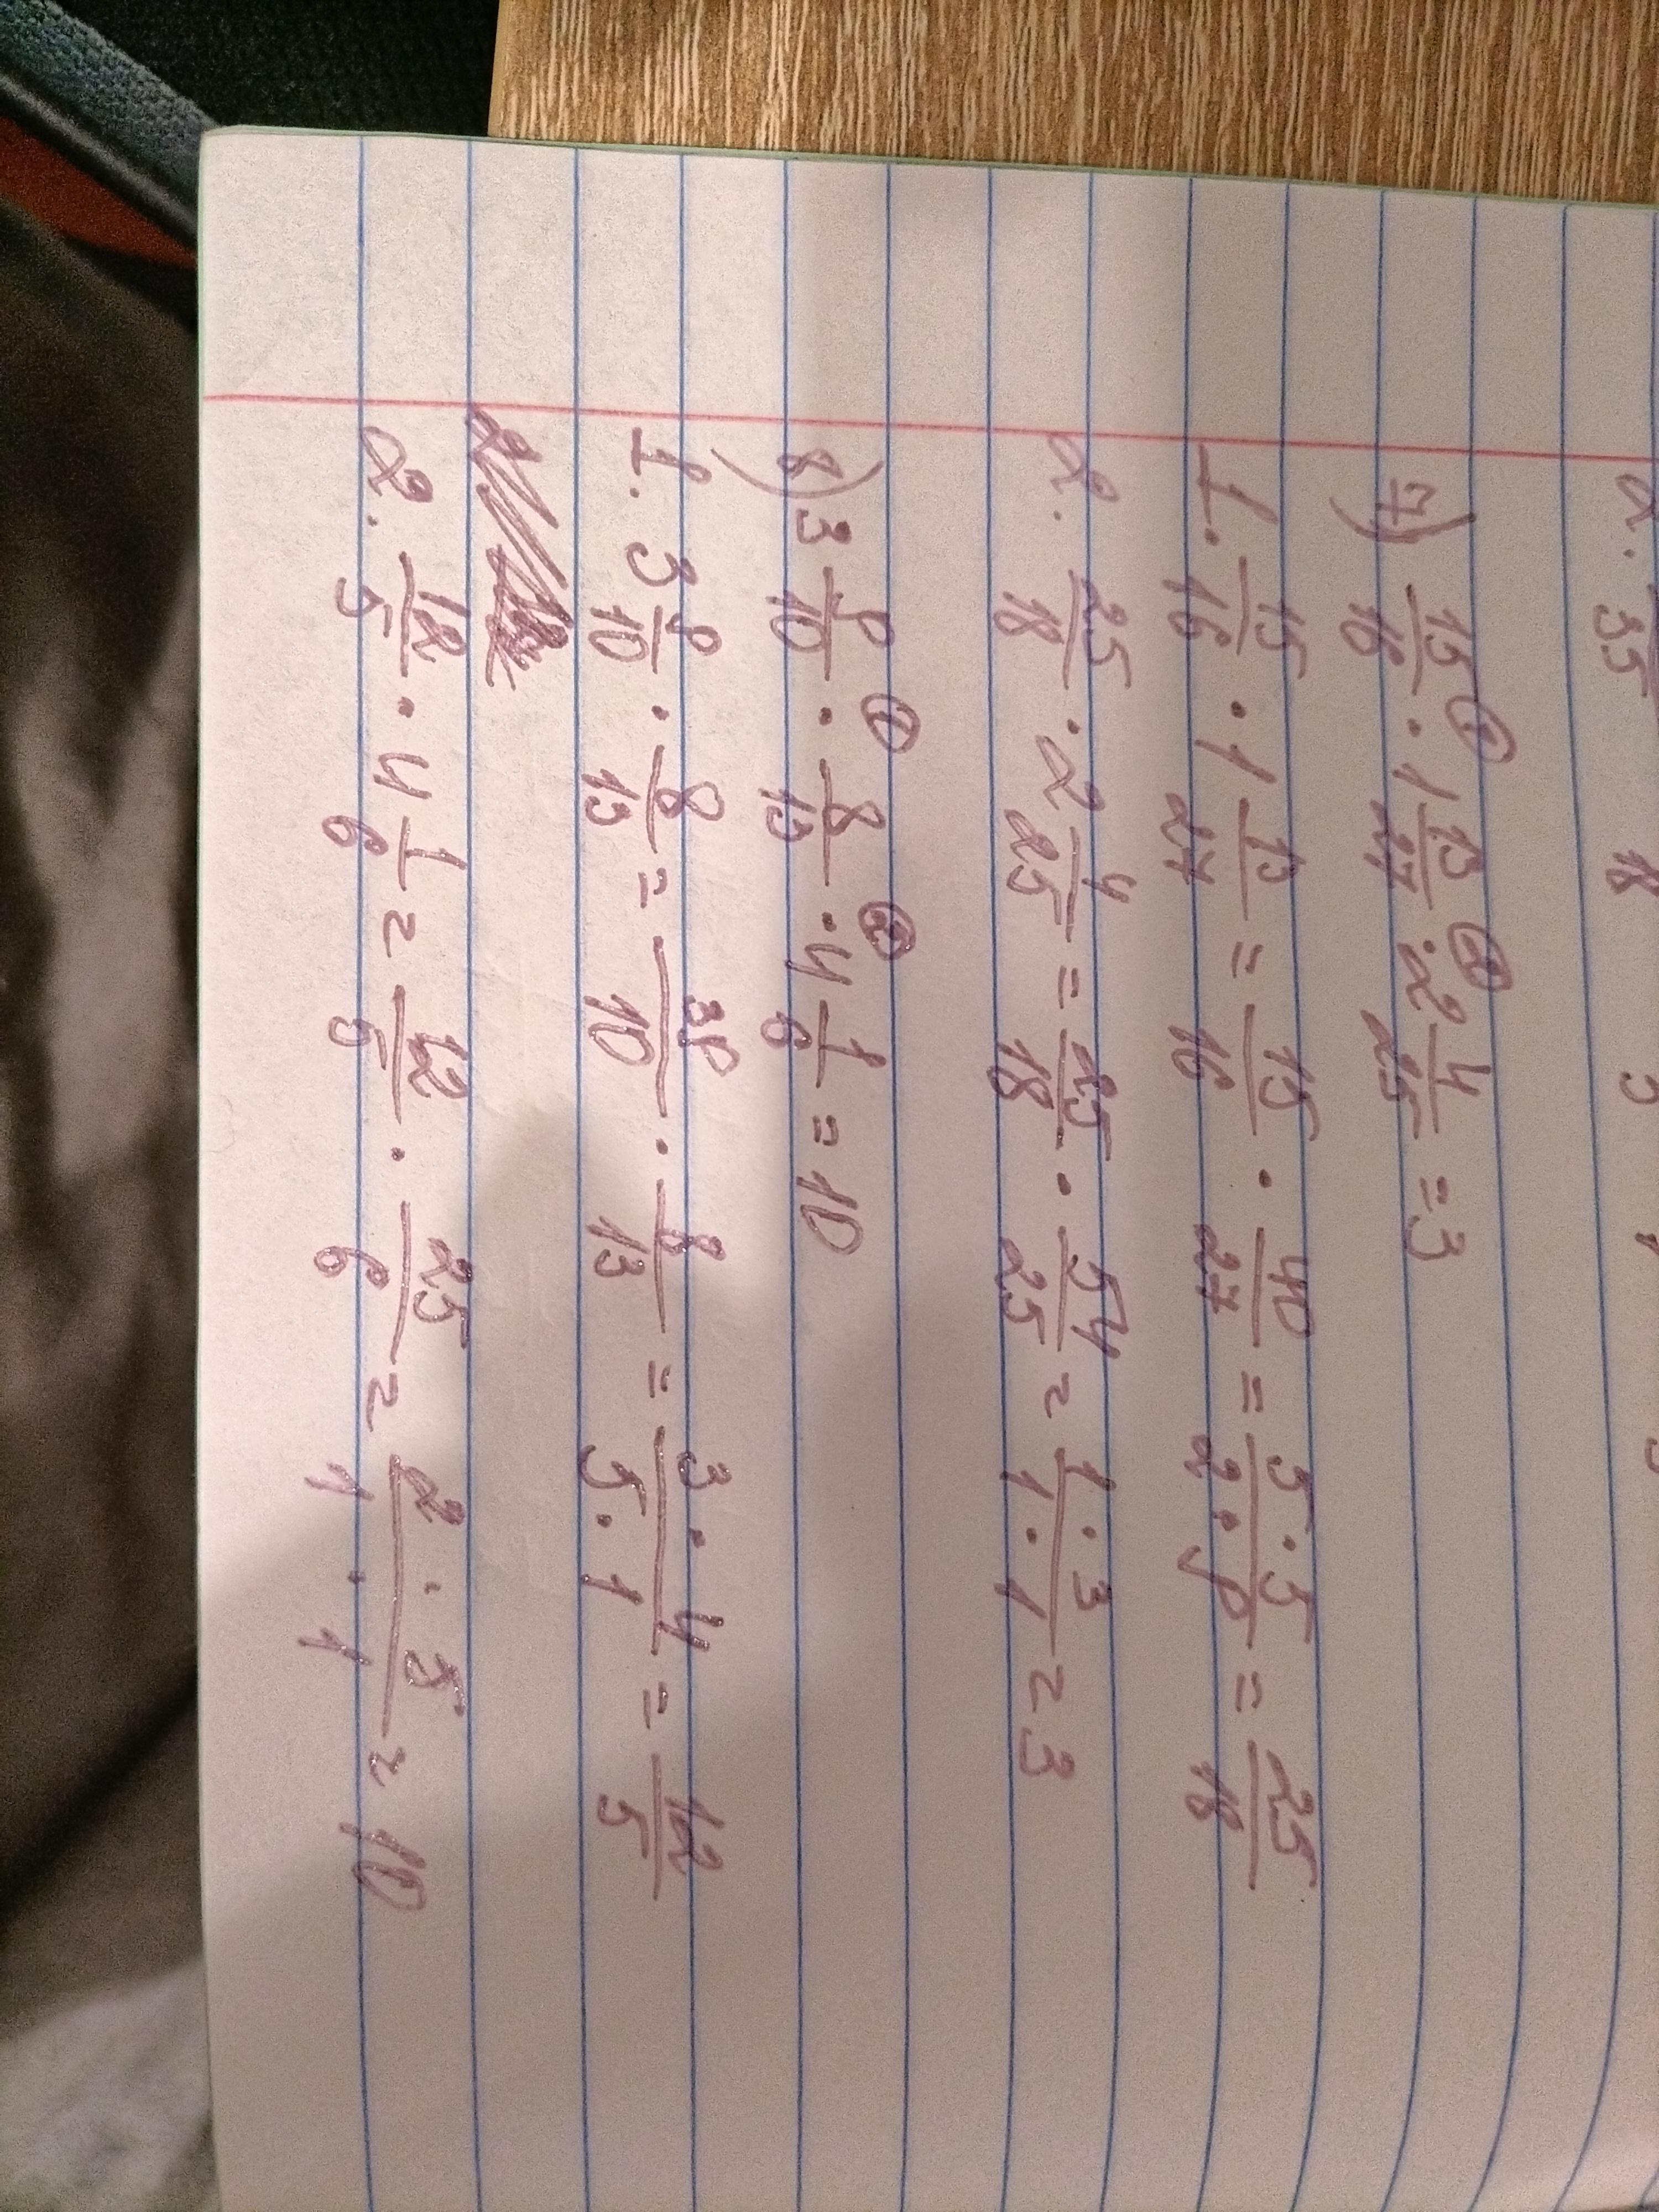 2. 35 18 5
7) 15/16 · 1 13/27 · 2 4/25 = 3
1. 15/16 · 1 13/27 = 15/16 · 40/27 = 5·5/2·9 = 25/18
2. 25/18 · 2 4/25 = 25/18 · 54/25 = 1·3/1·1 = 3
8) 3 9/10 · 8/13 · 4 1/6 = 10
1. 3 9/10 · 8/13 = 39/10 · 8/13 = 3·4/5·1 = 12/5
2. 12/5 · 4 1/6 = 12/5 · 25/6 = 2·5/1·1 = 10